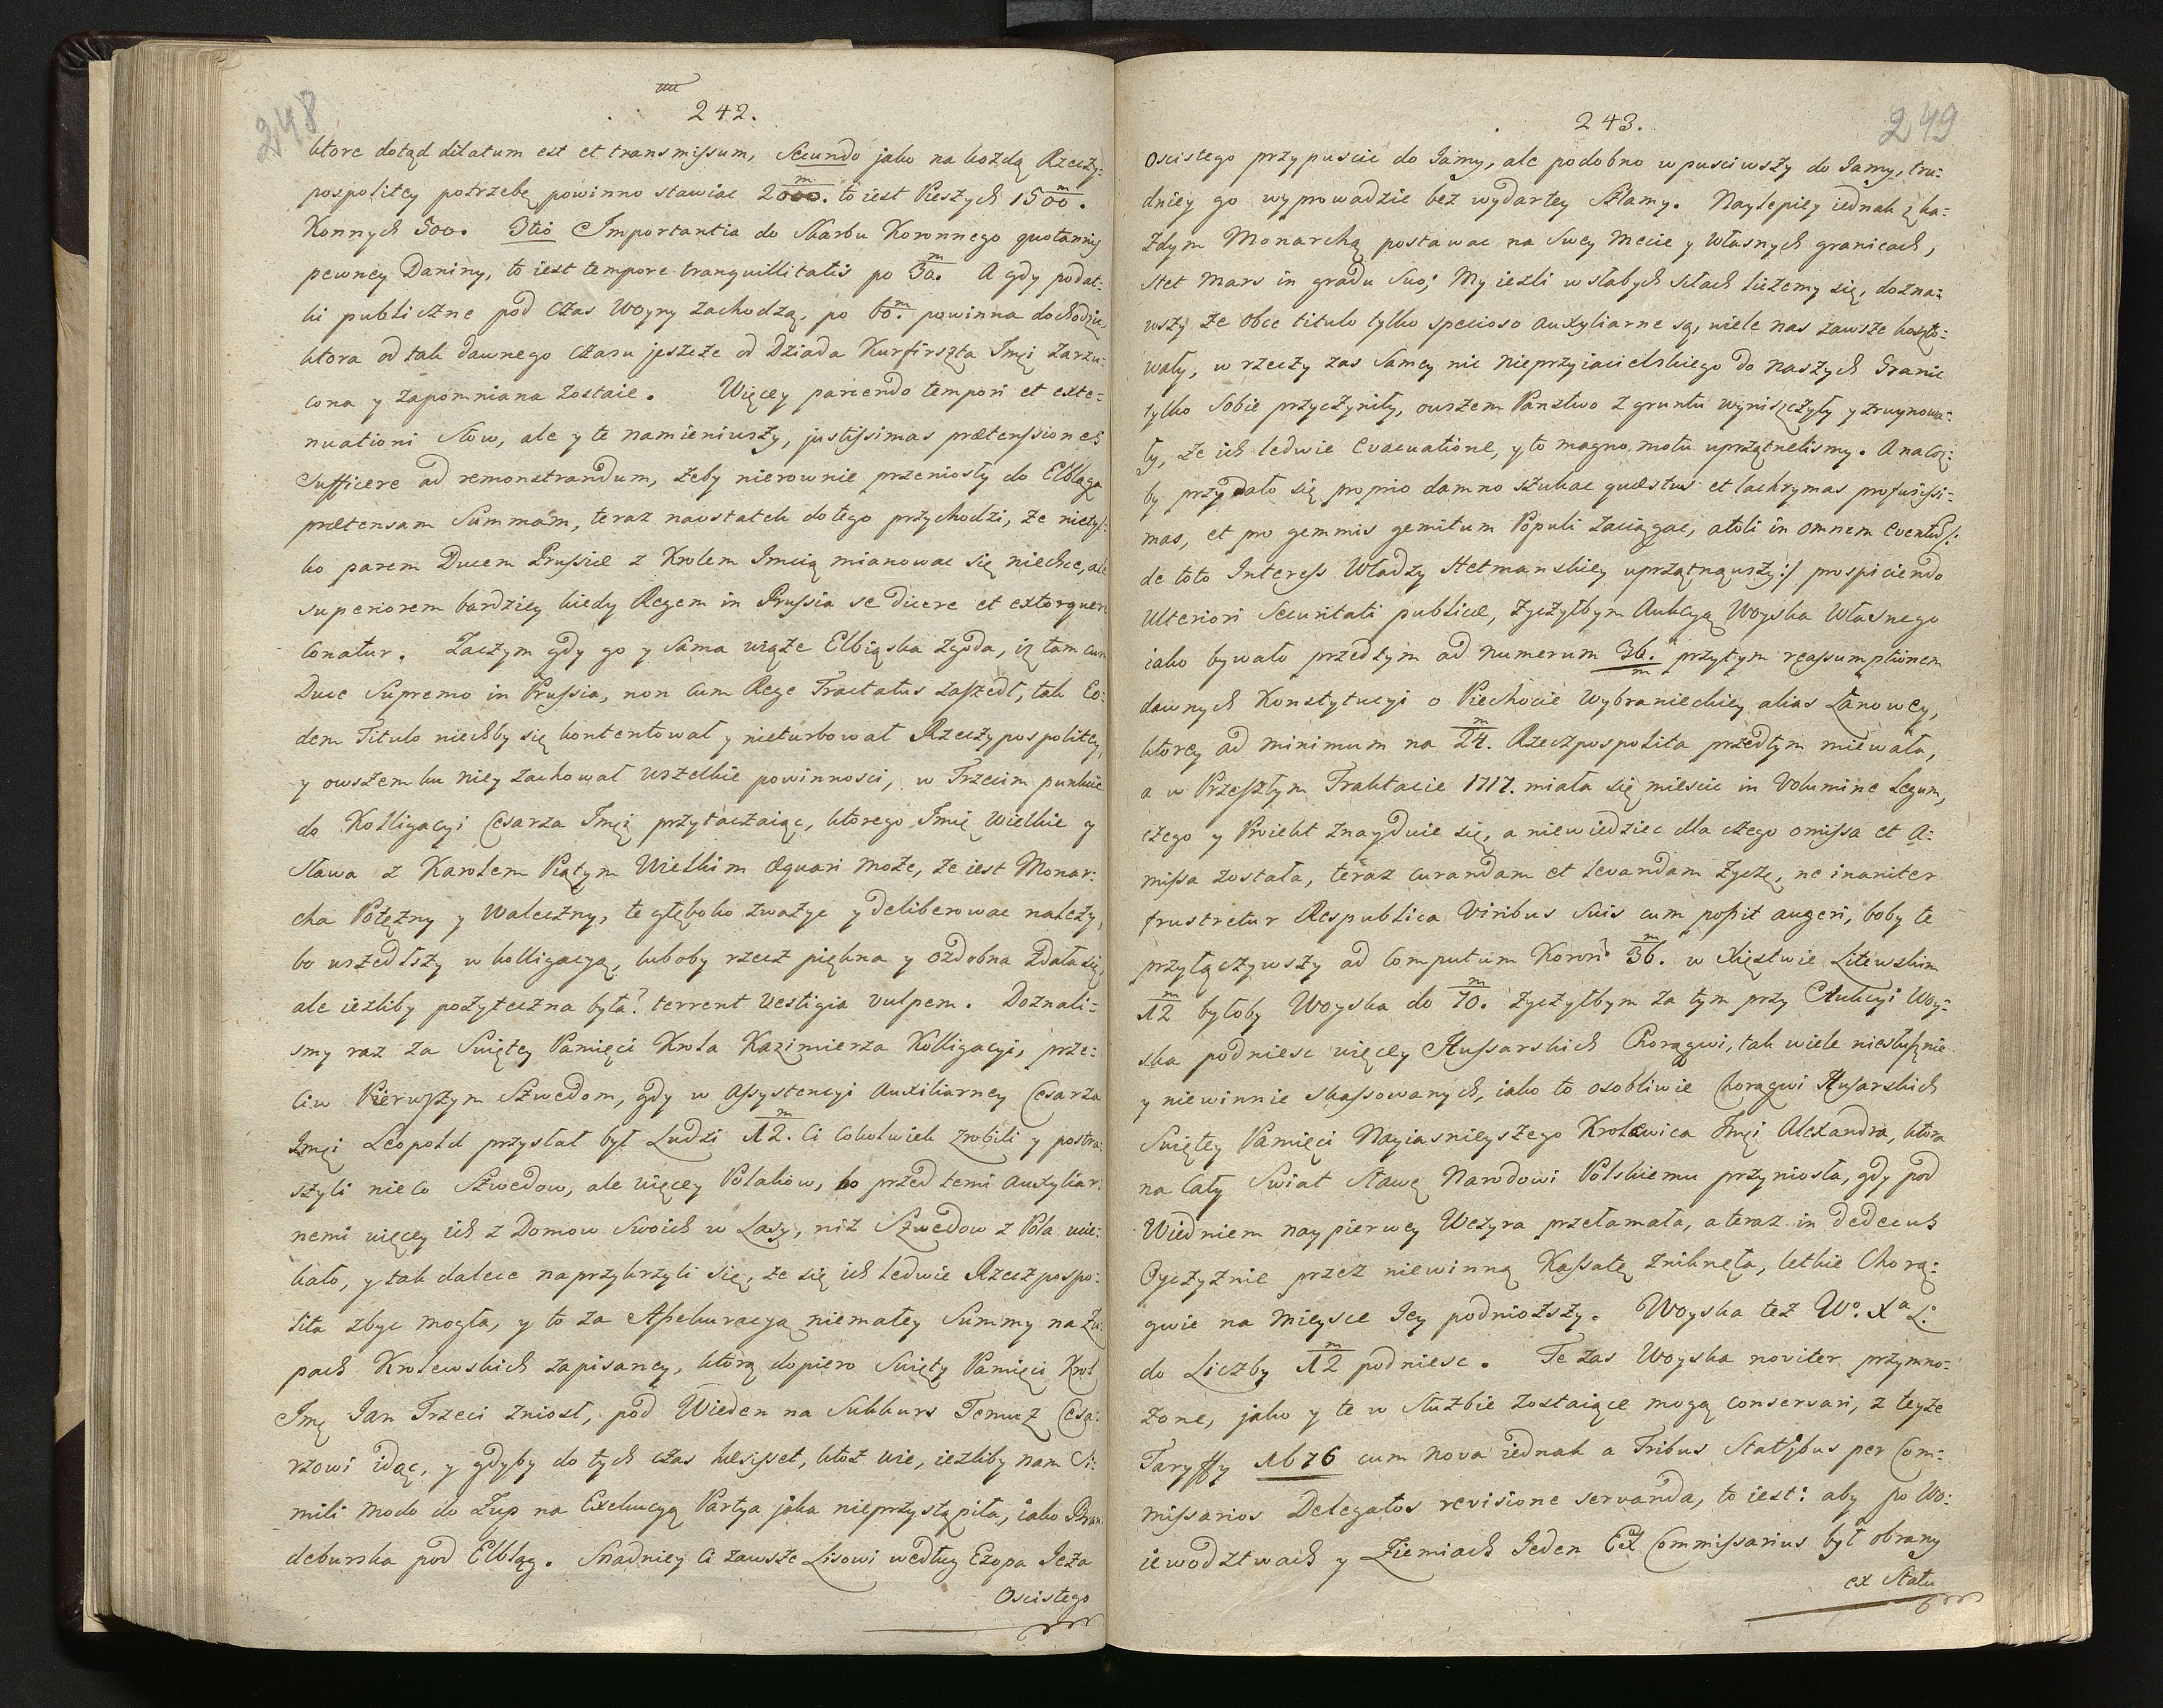 248
242.
ktore dotąd dilatum est et transmissum, Secundo jako na każdą Rzeczy-
pospolitey potrzebę powinno stawiac 2000. to iest Pieszych 1500.
Konnych 500. 3tio Importantia do Skarbu Koronnego quotannis
pewney Daniny, to iest tempore tranquillitatis po 30. m A gdy podat-
ki publiczne pod czas woyny zachodzą, po 60. m powinna dochodzic,
ktora od tak dawnego czasu jeszcze od Dziada Kurfirszta Jmci zarzu-
cona y zapomniana zostaie. Więcey parcendo tempori et exte-
nuationi słow, ale y te namieniwszy, justissimas prætensiones
sufficere ad remonstrandum, żeby nierownie przeniosły do Elbląga
prætensam Summam, teraz naostatek do tego przychodzi, że nietyl-
ko parem Ducem Prussiæ z Krolem Jmcią mianowac się niechce, ale
superiorem bardziey kiedy Regem in Prussia se dicere et extorquere
conatur. Zaczym gdy go y sama wiąże Elbiąska zgoda, iż tam cum
Duce Supremo in Prussia, non cum Rege Tractatus zaszedł, tak eo-
dem Titulo niechby się kontentował y nieturbował Rzeczypospolitey,
y owszem ku niey zachował wszelkie powinnosci, w Trzecim punkcie
do Kolligacyi Cesarza Jmci przytaczaiąc, ktorego Jmię wielkie y
sława z Karolem Piątym Wielkim æquari może, że iest Monar-
cha Potężny y waleczny, te głęboko zważyc y deliberowac należy,
bo wszedłszy w kolligacyą, luboby rzecz piękna y ozdobna zdała się,
ale iezliby pożyteczna była? terrent vestigia vulpem. Doznali-
smy raz za Swiętey Pamięci Krola Kazimierza Kolligacyi, prze-
ciw Pierwszym Szwedom, gdy w Assystencyi Auxiliarney Cesarza
Jmci Leopold przysłał był Ludzi 12. m Ci cokolwiek zrobili y postra-
szyli nieco Szwedow, ale więcey Polakow, bo przed temi auxyliar-
nemi więcey ich z Domow swoich w Lasy, niż Szwedow z Pola ucie-
kało, y tak dalece naprzykrzyli się, że się ich ledwie Rzeczpospo-
lita zbyc mogła, y to za Assekuracyą niemałey Summy na Żu-
pach Krolewskich zapisaney, ktorą dopiero Swięty Pamięci Krol
Jmć Jan Trzeci zniosł, pod Wieden na Sukkurs Temuż Cesa-
rzowi idąc, y gdyby do tych czas hesisset, ktoż wie, iezliby nam Si-
mili modo do Żup na Exekucyą Partya jaka nieprzystąpiła, iako Bran-
deburska pod Elbląg. Snadniey ci zawsze Lisowi według Ezopa Jeża
Oscistego
249
243.
Oscistego przypuscic do Jamy, ale podobno wpusciwszy do Jamy, tru-
dniey go wyprowadzic bez wydartey Słamy. Naylepiey iednak z ka-
żdym Monarchą postawac na swey mecie y własnych granicach,
stet Mars in gradu suo; My iezli w słabych siłach liczemy się, dozna-
wszy że obce titulo tylko specioso auxyliarne są, wiele nas zawsze koszto-
wały, w rzeczy zas samey nic nieprzyiacielskiego do naszych Granic
tylko sobie przyczyniły, owszem Panstwo z gruntu wyniszczyły y zruynowa-
ły, że ich ledwie evacuatione, y to magno motu uprzątnelismy. A nacoż
by przydało się proprio damno szukac quæstus et lachrymas profusissi-
mas, et pro gemmis gemitum Populi zaciągac, atoli in omnem eventum /:
de toto Interess Władzy Hetmanskiey uprzątnąwszy :/ prospiciendo
ulteriori Securitati publicæ, życzyłbym Aukcyą Woyska Własnego
iako bywało przedtym ad numerum 36. m przytym reassumptionem
dawnych Konstytucyi o Piechocie Wybranieckiey alias Łanowey,
ktorey ad minimum na 24. m Rzeczpospolita przedtym miewała,
a w Przeszłym Traktacie 1717. miała się miescic in Volumine Legum,
czego y Proiekt znayduie się, a niewiedziec dla czego omissa et a-
missa została, teraz curandam et levandam życzę, ne inaniter
frustretur Respublica Viribus suis cum possit augeri, boby te
przyłączywszy ad computum Koron: 36. m w Xięstwie Litewskim
12 m byłoby Woyska do 70. m życzyłbym za tym przy Aukcyi Woy-
ska podniesc więcey Hussarskich Chorągwi, tak wiele niesłusznie
y niewinnie skassowanych, iako to osobliwie Chorągwi Husarskich
Swiętey Pamięci Nayiasnieyszego Krolewica Jmci Alexandra, ktora
na cały swiat sławę Narodowi Polskiemu przyniosła, gdy pod
Wiedniem naypierwey Wezyra przełamała, a teraz in dedecus
Oyczyznie przez niewinną Kassatę zniknęła, letkie Chorą-
gwie na mieysce Jey podniozszy. Woyska też Wo. Xa L:
do Liczby 12 m podniesc. Te zas Woyska noviter przymno-
żone, jako y te w służbie zostaiące mogą conservari, z teyże
Taryffy 1676 cum nova iednak a Tribus Statibus per Com-
missarios Delegatos revisione servanda, to iest: aby po Wo-
iewodztwach y Ziemiach Jeden Ex Commissarius był obrany
ex Statu